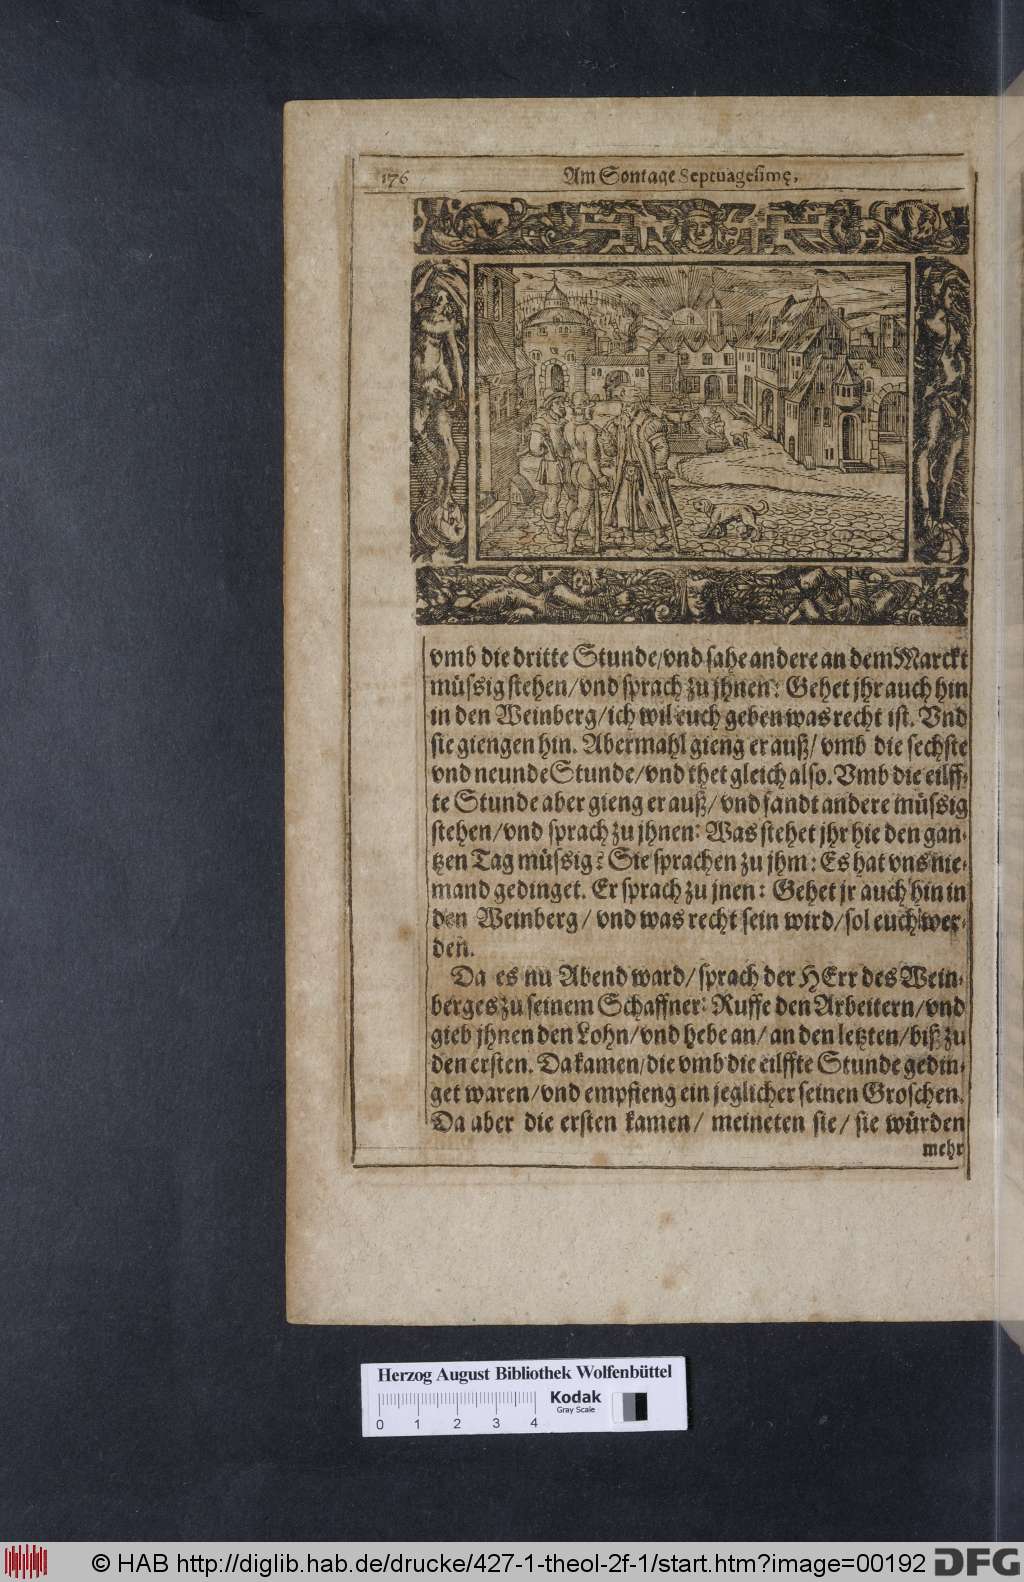 176
Am Sontage Septuagesimę,
vmb die dritte Stunde/vnd sahe andere an dem Marckt
müssig stehen/vnd sprach zu jhnen: Gehet jhr auch hin
in den Weinberg/ich wil euch geben was recht ist. Vnd
sie giengen hin. Abermahl gieng er auß/ vmb die sechste
vnd neunde Stunde/vnd thet gleich also. Vmb die eilff-
te Stunde aber gieng er auß/ vnd fandt andere müssig
stehen/vnd sprach zu jhnen: Was stehet jhr hie den gan-
tzen Tag müssig? Sie sprachen zu jhm: Es hat vns nie-
mand gedinget. Er sprach zu jnen: Gehet jr auch hin in
den Weinberg/ vnd was recht sein wird/sol euch wer-
den.
Da es nu Abend ward/ sprach der HErr des Wein-
berges zu seinem Schaffner: Ruffe den Arbeitern/vnd
gieb jhnen den Lohn/vnd hebe an/ an den letzten/biß zu
den ersten. Da kamen/die vmb die eilffte Stunde gedin-
get waren/vnd empfieng ein jeglicher seinen Groschen.
Da aber die ersten kamen/ meineten sie/ sie würden
mehr
Herzog August Bibliothek Wolfenbüttel
Kodak
Gray Scale
0 1 2 3 4
© HAB http://diglib.hab.de/drucke/427-1-theol-2f-1/start.htm?image=00192
DFG